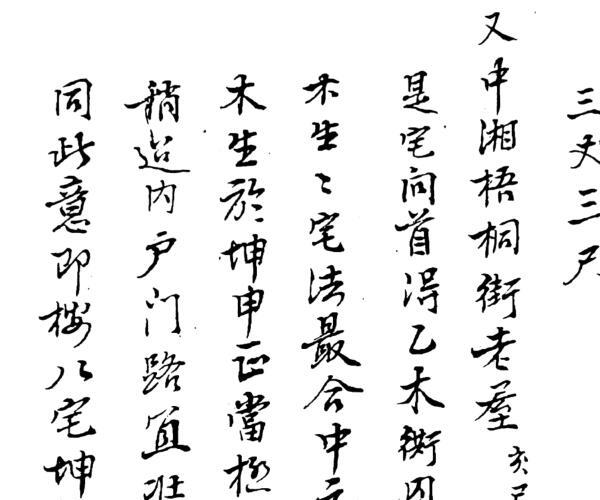 三丈三尺
又中湘梧桐街老屋亥
是宅向首得乙木衔
木生〻宅法最合中
木生於坤申正當極
稍迤内户门路宜
同此意即按八宅坤